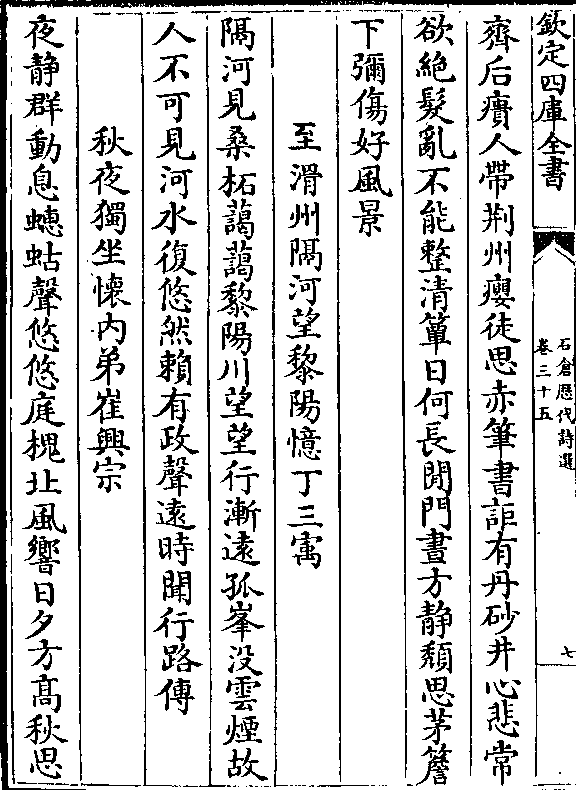 欽定四庫全書
石倉歷代詩選
卷三十五
七
齊后癀人帶荆州癭徒思赤筆書詎有丹砂井心悲常
欲絶髮亂不能整清簟日何長閒門晝方静頽思茅簷
下彌傷好風景
至滑州隔河望黎陽憶丁三寓
隔河見桑柘藹藹黎陽川望望行漸遠孤峯没雲煙故
人不可見河水復悠然賴有政聲遠時聞行路傳
秋夜獨坐懷内弟崔興宗
夜静群動息蟪蛄聲悠悠庭槐北風響日夕方髙秋思